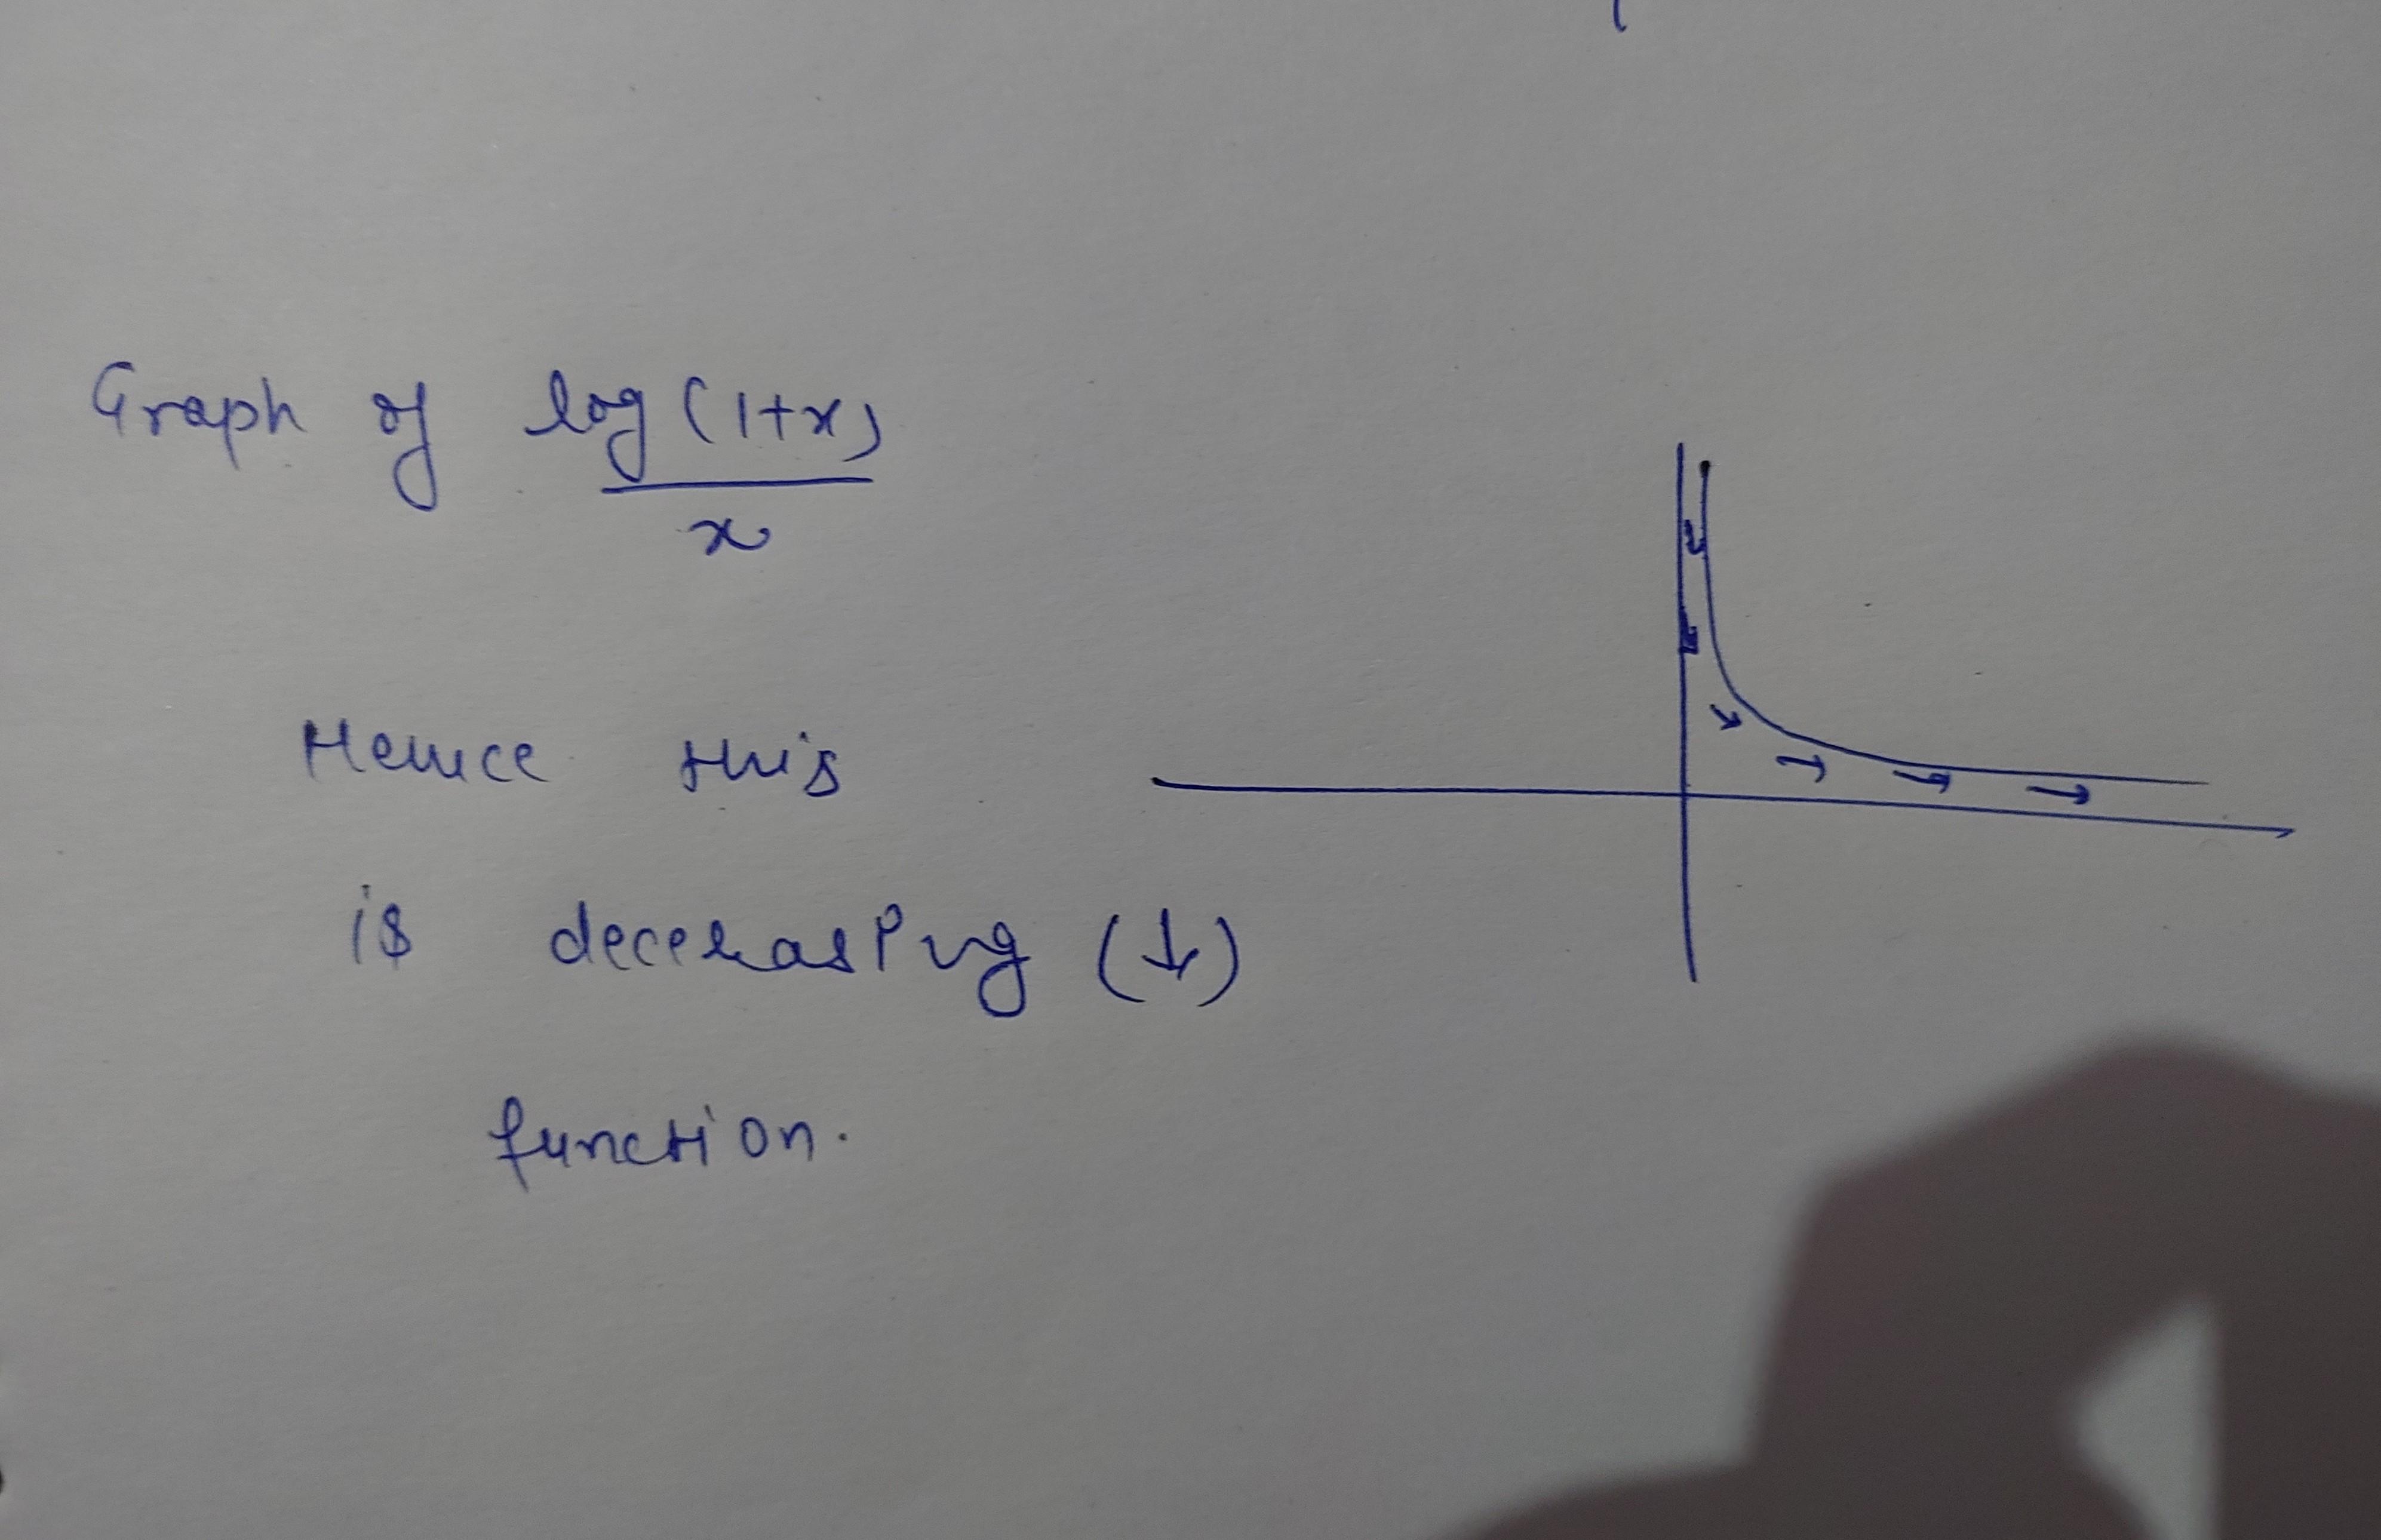 Graph of log(1+x)
x
Hence this
is decerasing (↓)
function.